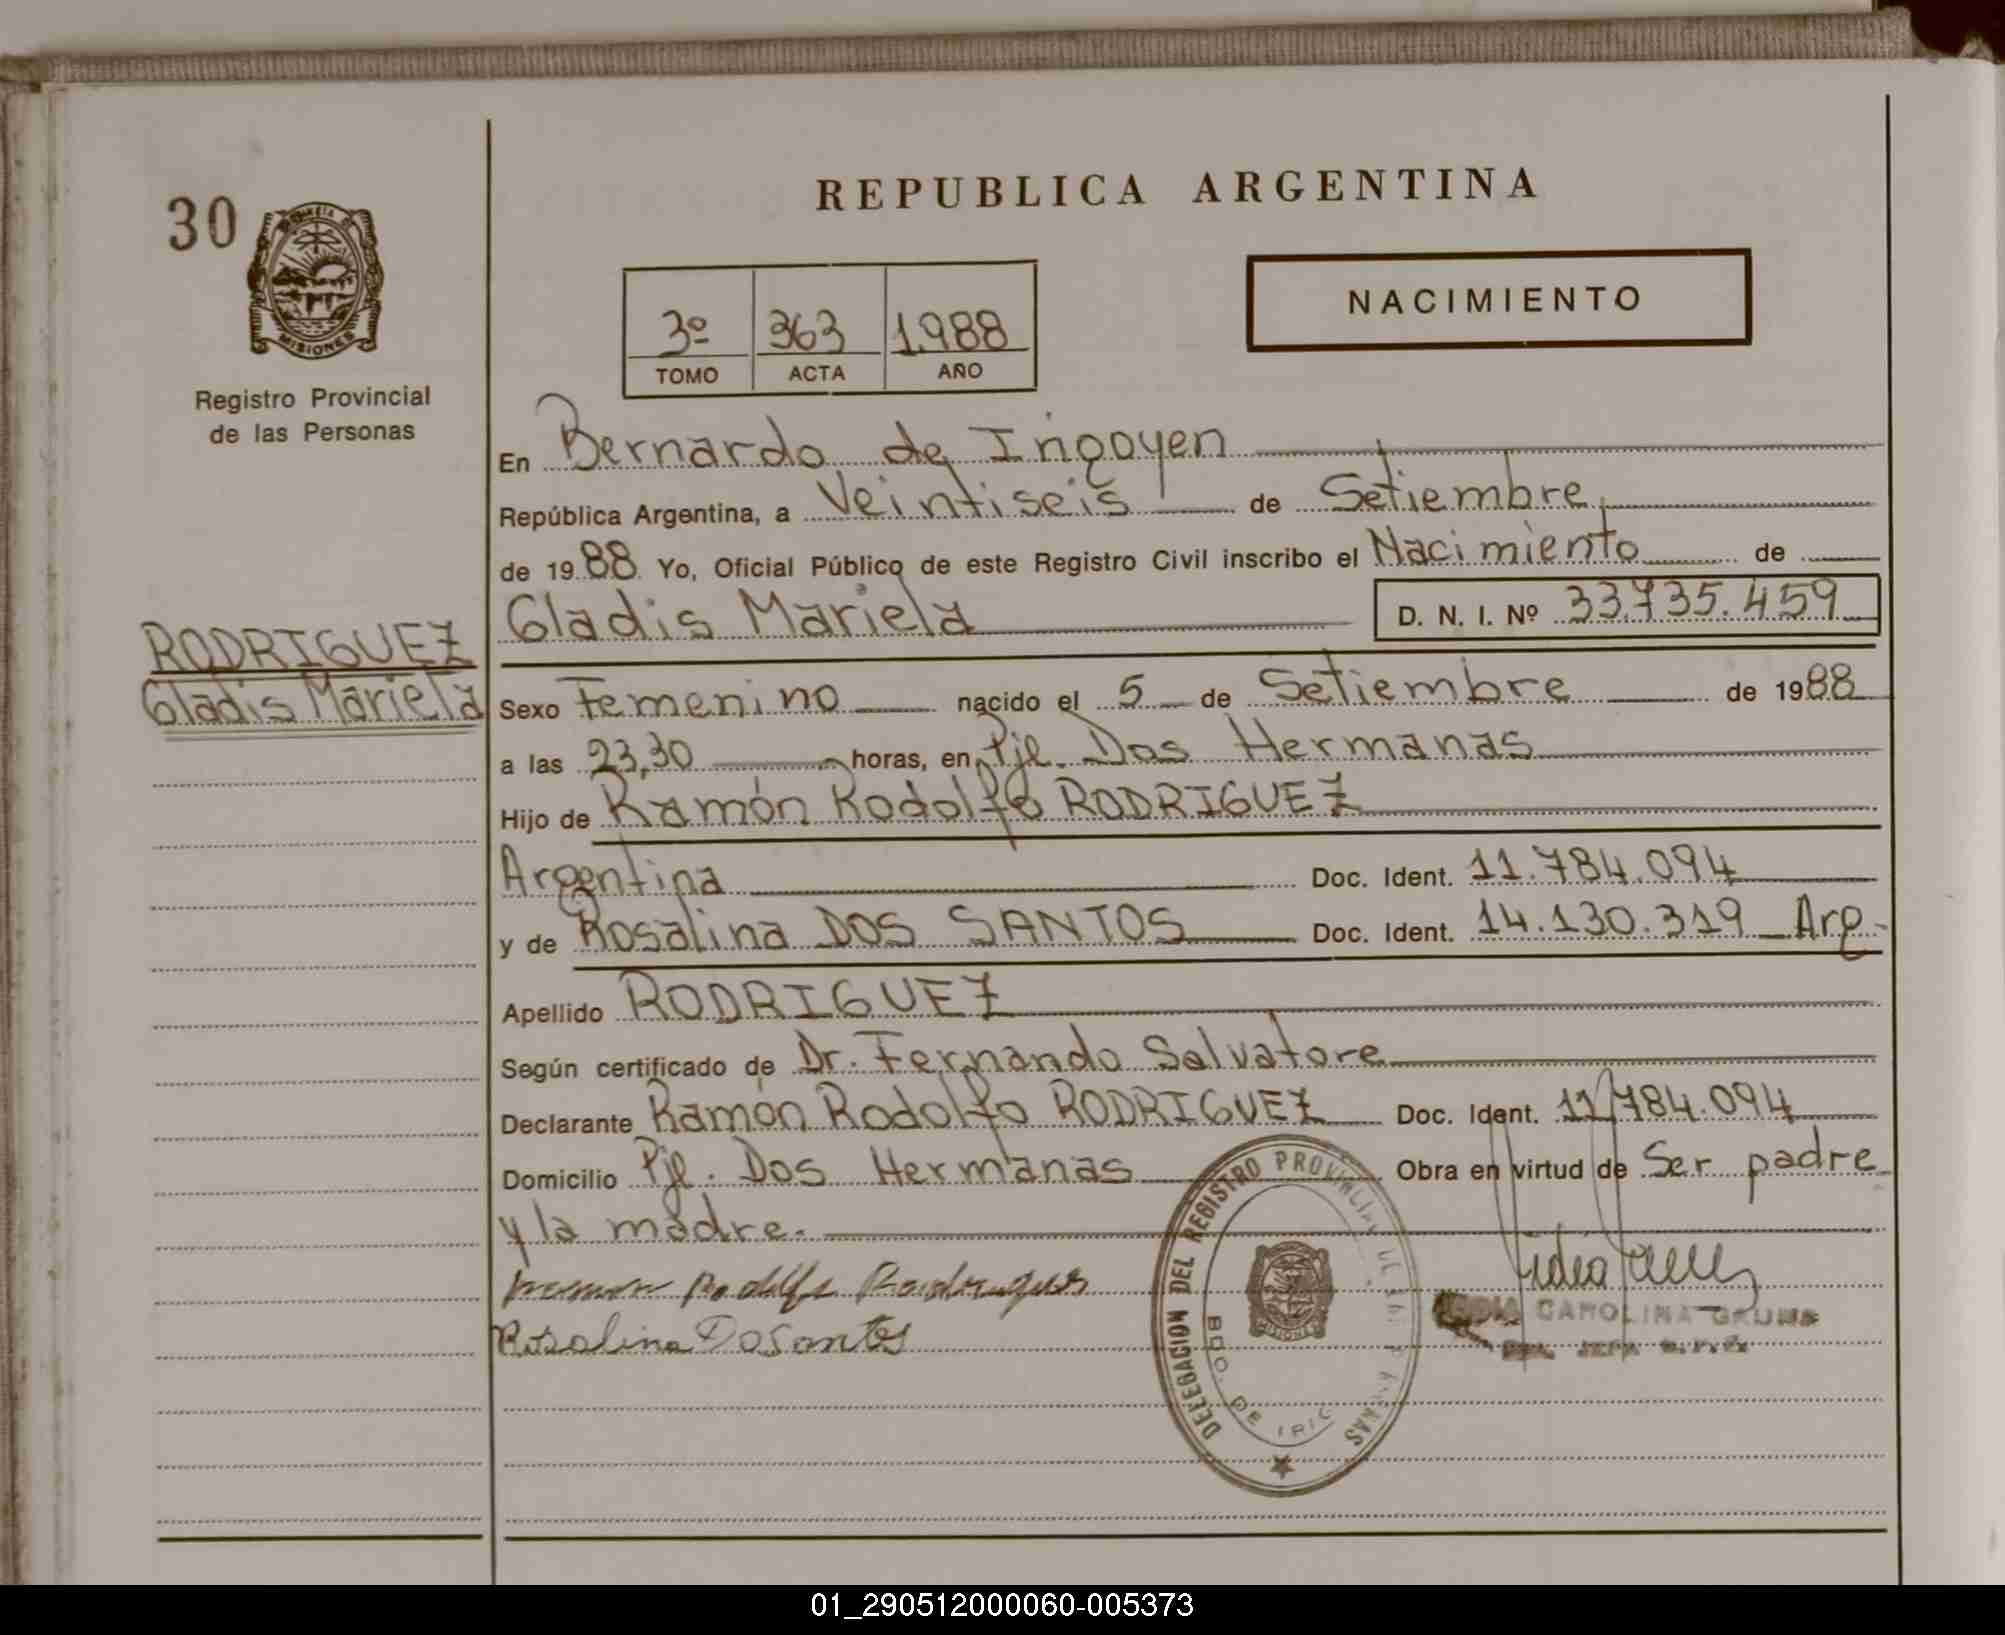 REPUBLICA ARGENTINA
30
MISIONES
Registro Provincial
de las Personas
NACIMIENTO
3º 363 1.988
TOMO ACTA AÑO
En Bernardo de Irigoyen
República Argentina, a Veintiseis de Setiembre
de 1988 Yo, Oficial Público de este Registro Civil inscribo el Nacimiento de
Gladis Mariela D. N. I. Nº 33.735.459
RODRIGUEZ
Gladis Mariela
Sexo Femenino nacido el 5 de Setiembre de 1988
a las 23,30 horas, en Pje. Dos Hermanas
Hijo de Ramón Rodolfo RODRIGUEZ
Argentina Doc. Ident. 11.784.094
y de Rosalina DOS SANTOS Doc. Ident. 14.130.319 Arg.
Apellido RODRIGUEZ
Según certificado de Dr. Fernando Salvatore
Declarante Ramón Rodolfo RODRIGUEZ Doc. Ident. 11.784.094
Domicilio Pje. Dos Hermanas Obra en virtud de Ser padre
y la madre.
Rodolfo
Rosalina Dosantos
DELEGACION DEL REGISTRO PROVINCIAL
BDO. DE IRIG
MISIONES
CAROLINA
01_290512000060-005373